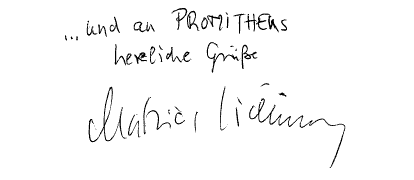 ...und an PROMITHEUS
herzliche Grüße